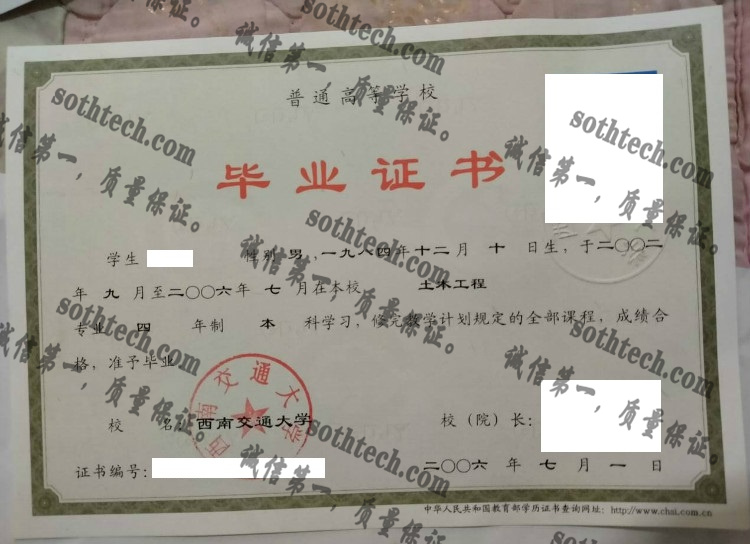 普通高等学校
毕业证书
学生 性别 男,一九八四年十二月 十 日生,于二〇〇二
年 九 月至二〇〇六年 七 月在本校 土木工程
专业 四 年制 本 科学习,修完教学计划规定的全部课程,成绩合
格,准予毕业
校 名: 西南交通大学
校(院)长:
证书编号:
二〇〇六 年 七 月 一 日
中华人民共和国教育部学历证书查询网址: http://www.chsi.com.cn
西南交通大学
sothtech.com
诚信第一,质量保证。
sothtech.com
诚信第一,质量保证。
sothtech.com
诚信第一,质量保证。
sothtech.com
诚信第一,质量保证。
sothtech.com
诚信第一,质量保证。
sothtech.com
诚信第一,质量保证。
sothtech.com
诚信第一,质量保证。
sothtech.com
诚信第一,质量保证。
sothtech.com
sothtech.com